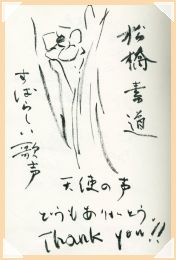 松檜喜道
すばらしい歌声
天使の声
どうもありがとう
Thank you!!